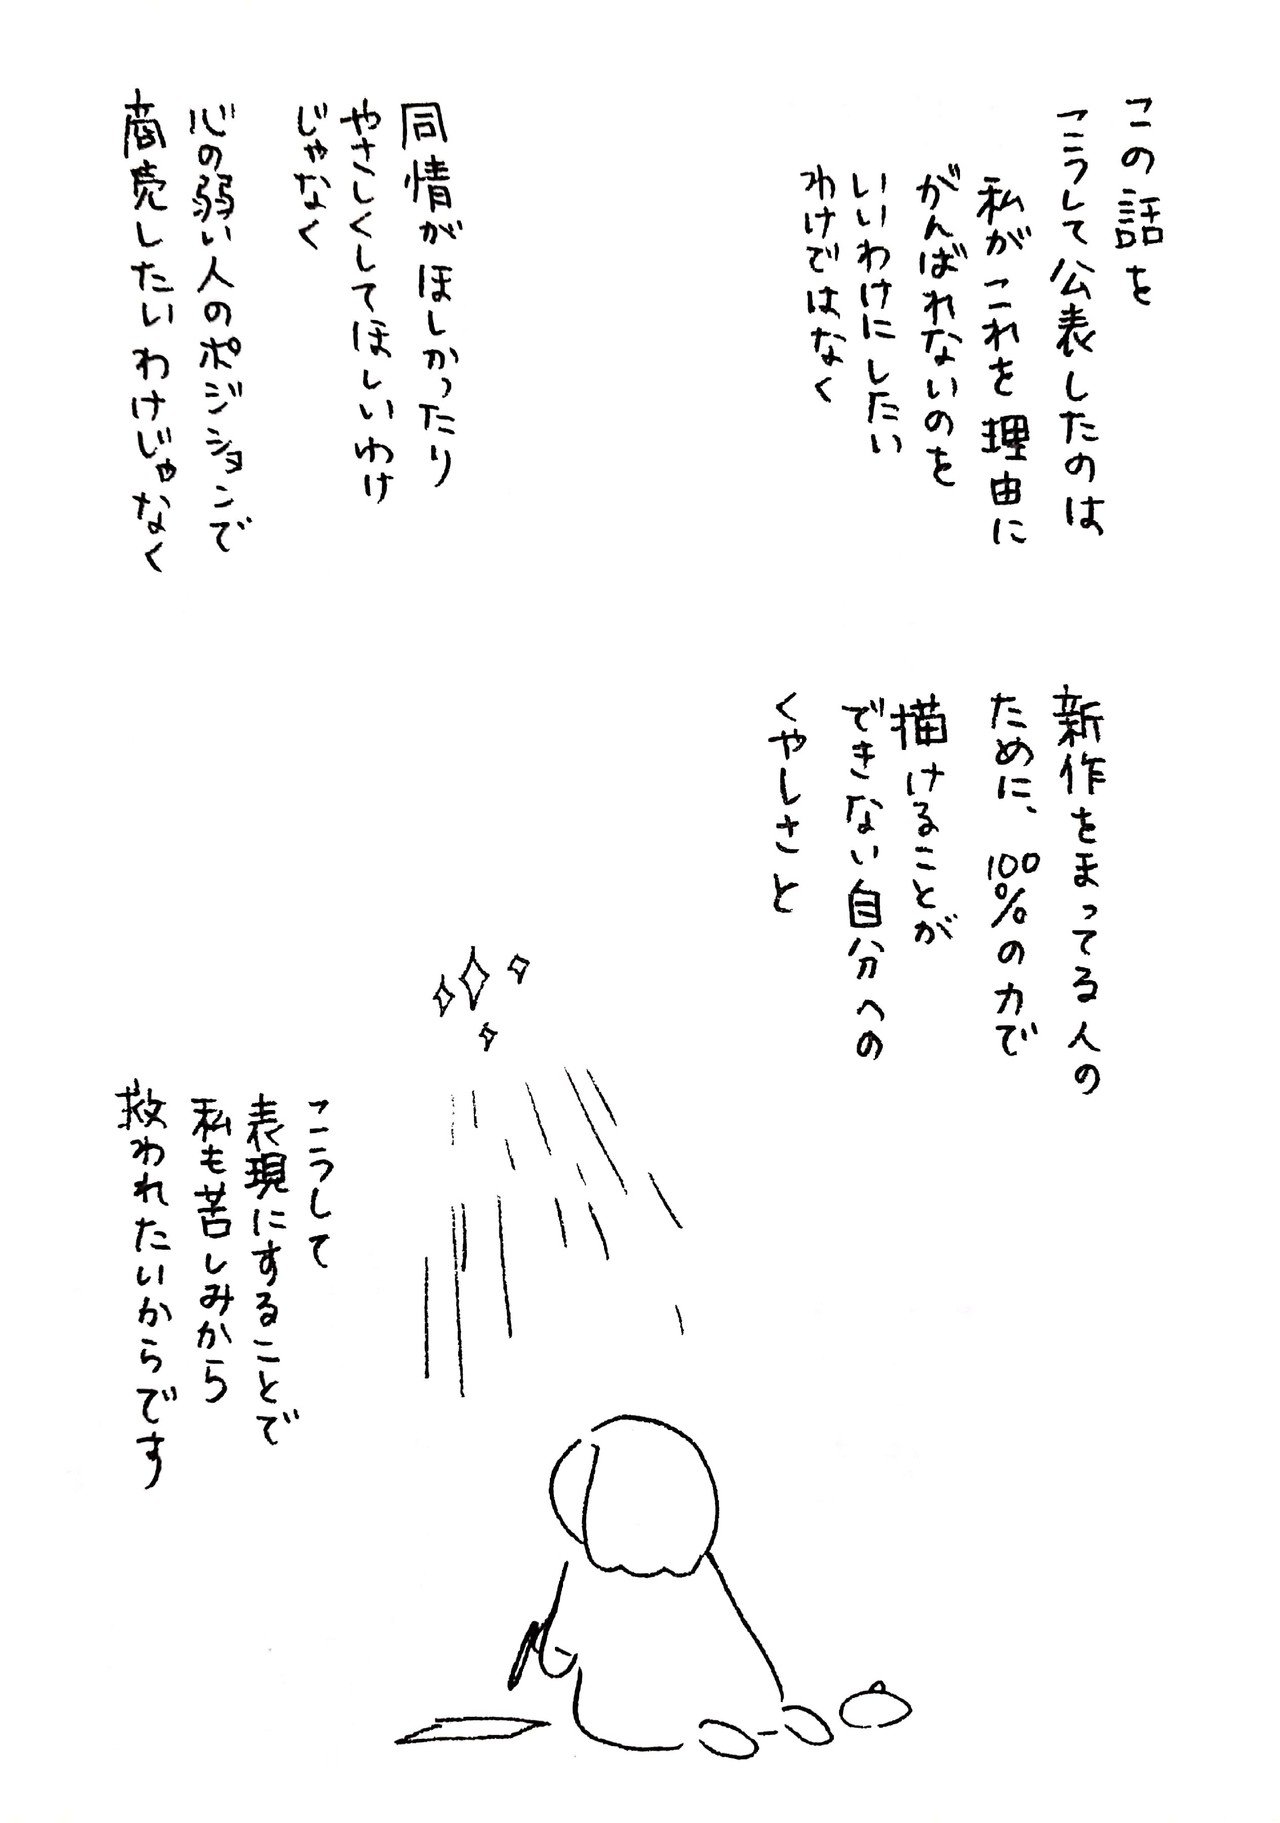 この話を
こうして公表したのは
私がこれを理由に
がんばれないのを
いいわけにしたい
わけではなく
同情がほしかったり
やさしくしてほしいわけ
じゃなく
心の弱い人のポジションで
商売したいわけじゃなく
新作をまってる人の
ために、100%の力で
描けることが
できない自分への
くやしさと
こうして
表現にすることで
私も苦しみから
救われたいからです